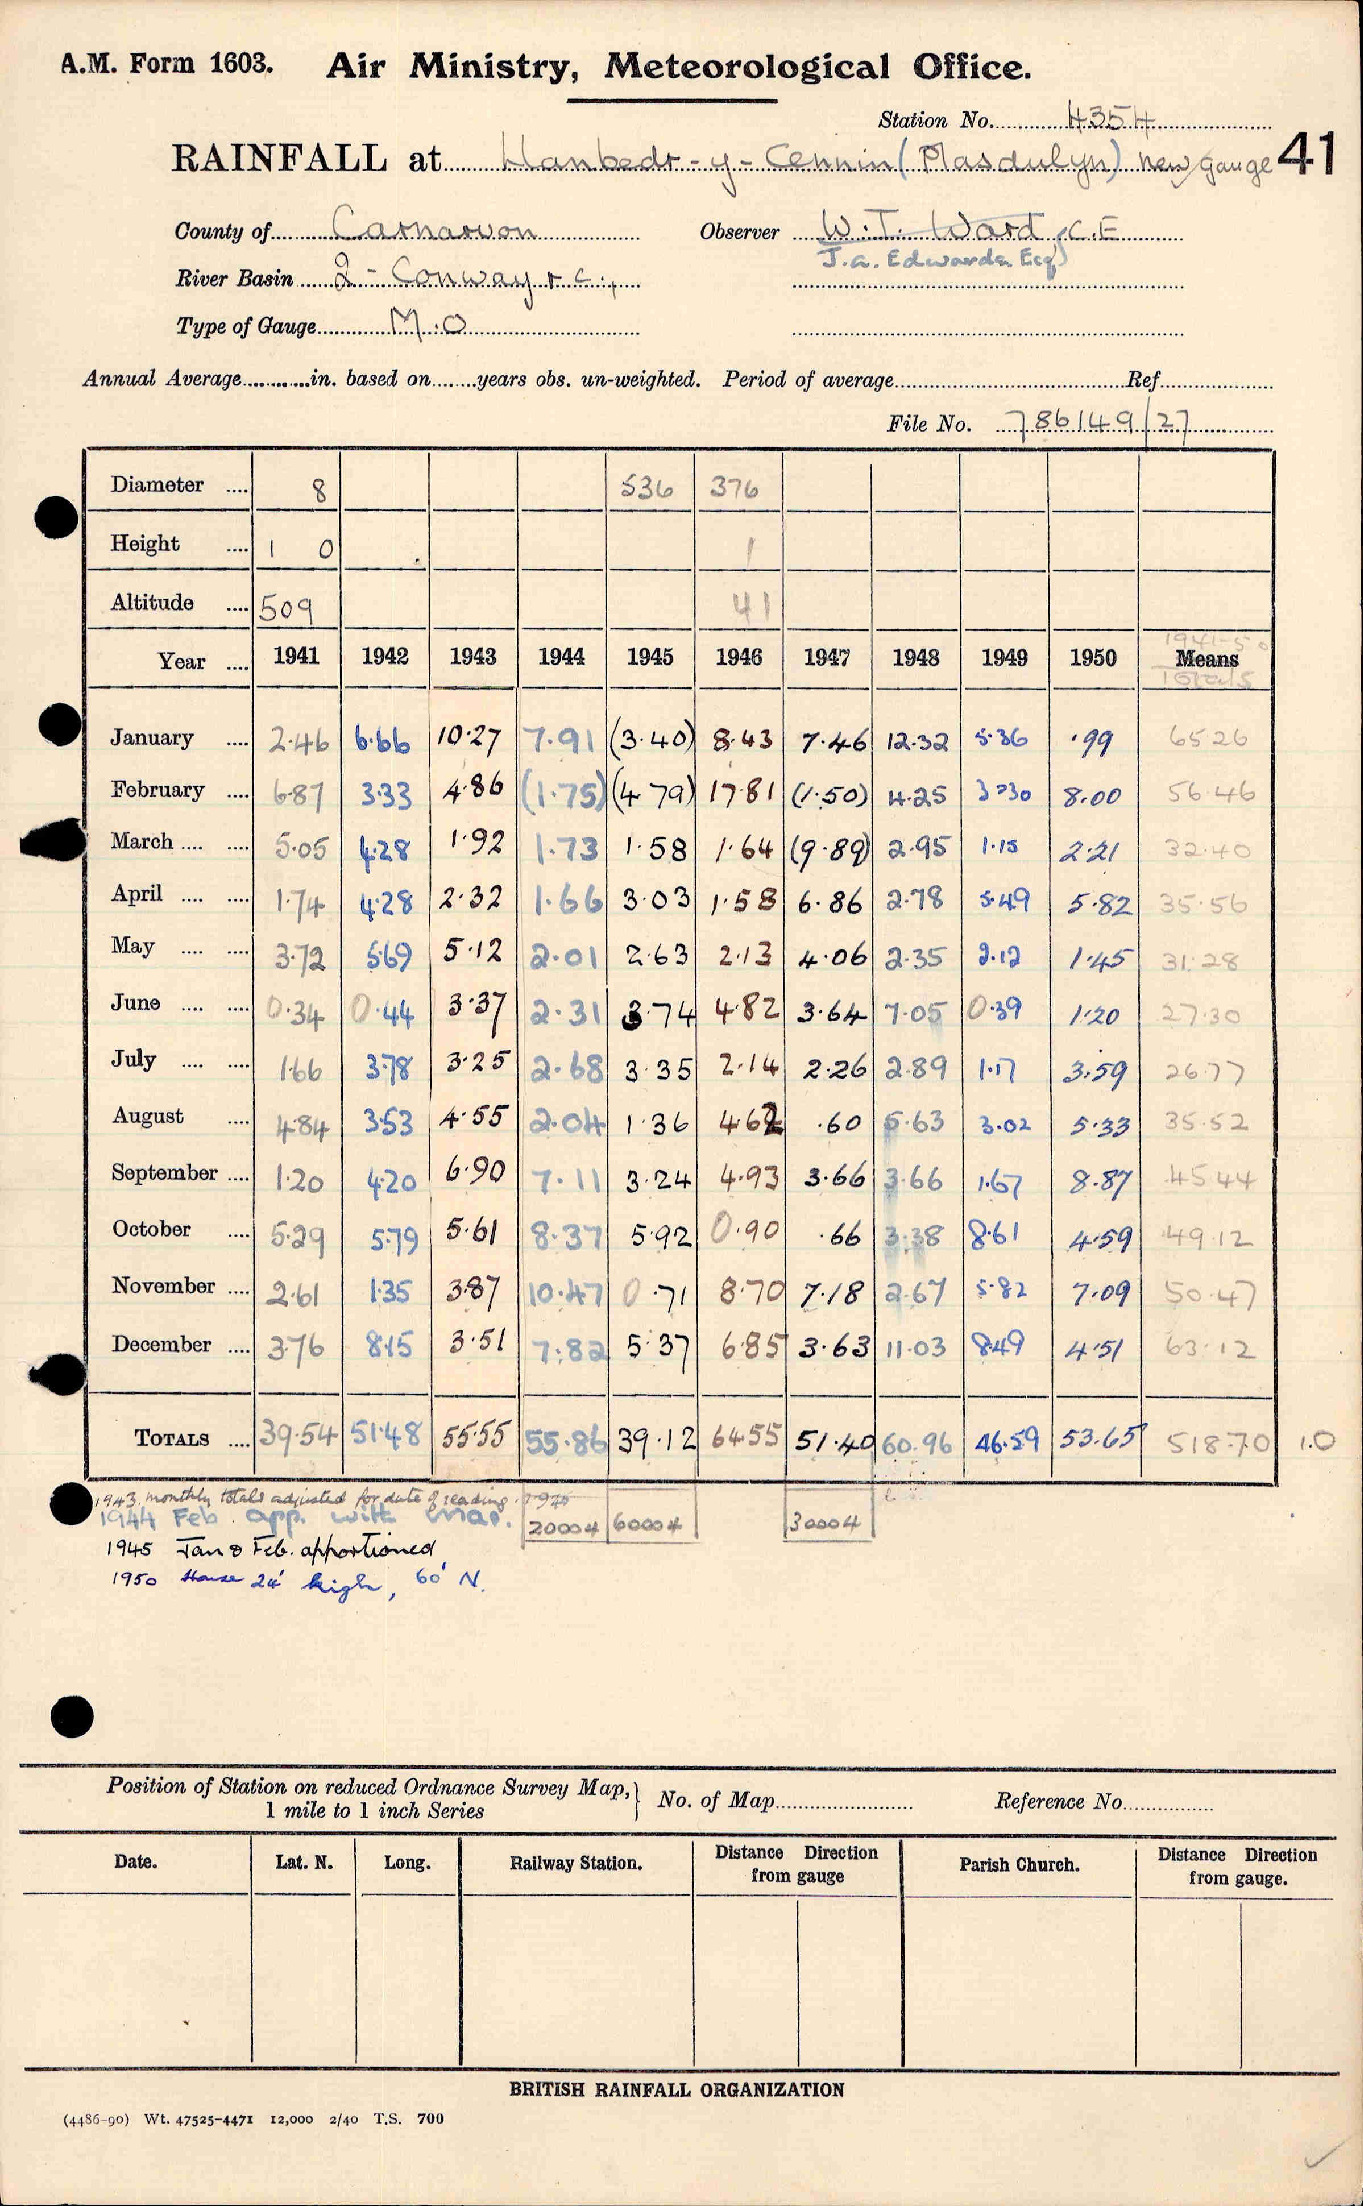 A.M. Form 1603. Air Ministry, Meteorological Office.
Station No. 4354
RAINFALL at Llanbedr-y-Cennin (Plasdulyn) new gauge 41
County of Carnarvon Observer W. T. Ward, C.E
J.A. Edwards Esq
River Basin 2 - Conway & C.,
Type of Gauge M.O
Annual Average in. based on years obs. un-weighted. Period of average Ref
File No. 786149/27
Diameter .... 8 536 376
Height .... 1 0 1
Altitude .... 509 41
1941-50
Year .... 1941 1942 1943 1944 1945 1946 1947 1948 1949 1950 Means
Totals
January .... 2.46 6.66 10.27 7.91 (3.40) 8.43 7.46 12.32 5.36 .99 65.26
February .... 6.87 3.33 4.86 (1.75) (4.79) 17.81 (1.50) 4.25 3.30 8.00 56.46
March .... .... 5.05 4.28 1.92 1.73 1.58 1.64 (9.89) 2.95 1.15 2.21 32.40
April .... .... 1.74 4.28 2.32 1.66 3.03 1.58 6.86 2.78 5.49 5.82 35.56
May .... .... 3.72 5.69 5.12 2.01 2.63 2.13 4.06 2.35 2.12 1.45 31.28
June .... .... 0.34 0.44 3.37 2.31 3.74 4.82 3.64 7.05 0.39 1.20 27.30
July .... .... 1.66 3.78 3.25 2.68 3.35 2.14 2.26 2.89 1.17 3.59 26.77
August .... 4.84 3.53 4.55 2.04 1.36 4.62 .60 5.63 3.02 5.33 35.52
September .... 1.20 4.20 6.90 7.11 3.24 4.93 3.66 3.66 1.67 8.87 45.44
October .... 5.29 5.79 5.61 8.37 5.92 0.90 .66 3.38 8.61 4.59 49.12
November .... 2.61 1.35 3.87 10.47 0.71 8.70 7.18 2.67 5.82 7.09 50.47
December .... 3.76 8.15 3.51 7.82 5.37 6.85 3.63 11.03 8.49 4.51 63.12
TOTALS .... 39.54 51.48 55.55 55.86 39.12 64.55 51.40 60.96 46.59 53.65 518.70 1.0
1943 monthly totals adjusted for date of reading.
1944 Feb. app. with map. 20004 60004 30004
1945 Jan & Feb. apportioned
1950 House 24' high, 60' N.
Position of Station on reduced Ordnance Survey Map, No. of Map Reference No.
1 mile to 1 inch Series
Date. Lat. N. Long. Railway Station. Distance Direction from gauge Parish Church. Distance Direction from gauge.
BRITISH RAINFALL ORGANIZATION
(4486-90) Wt. 47525-4471 12,000 2/40 T.S. 700